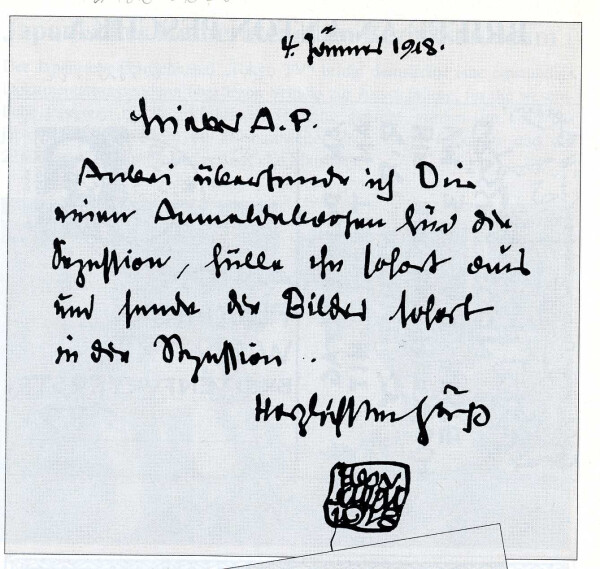 4. Jänner 1918.
Lieber A.P.
Anbei übersende ich Dir
einen Anmeldebogen für die
Sezession, fülle ihn sofort aus
und sende die Bilder sofort
in die Sezession.
Herzlichsten Gruß
1918